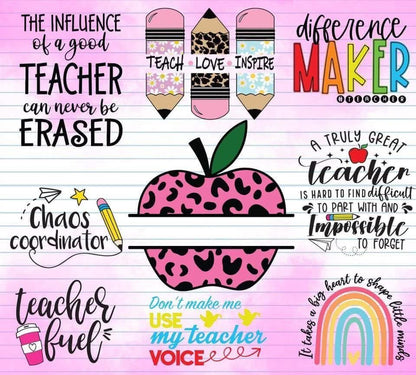 THE INFLUENCE
of a good
TEACHER
can never be
ERASED
TEACH LOVE INSPIRE
difference
MAKER
#TEACHER
A TRULY GREAT
teacher
IS HARD TO FIND difficult
TO PART WITH AND
Impossible
TO FORGET
Chaos
coordinator
teacher
fuel
Don't make me
USE
my teacher
VOICE
It takes a big heart to shape little minds